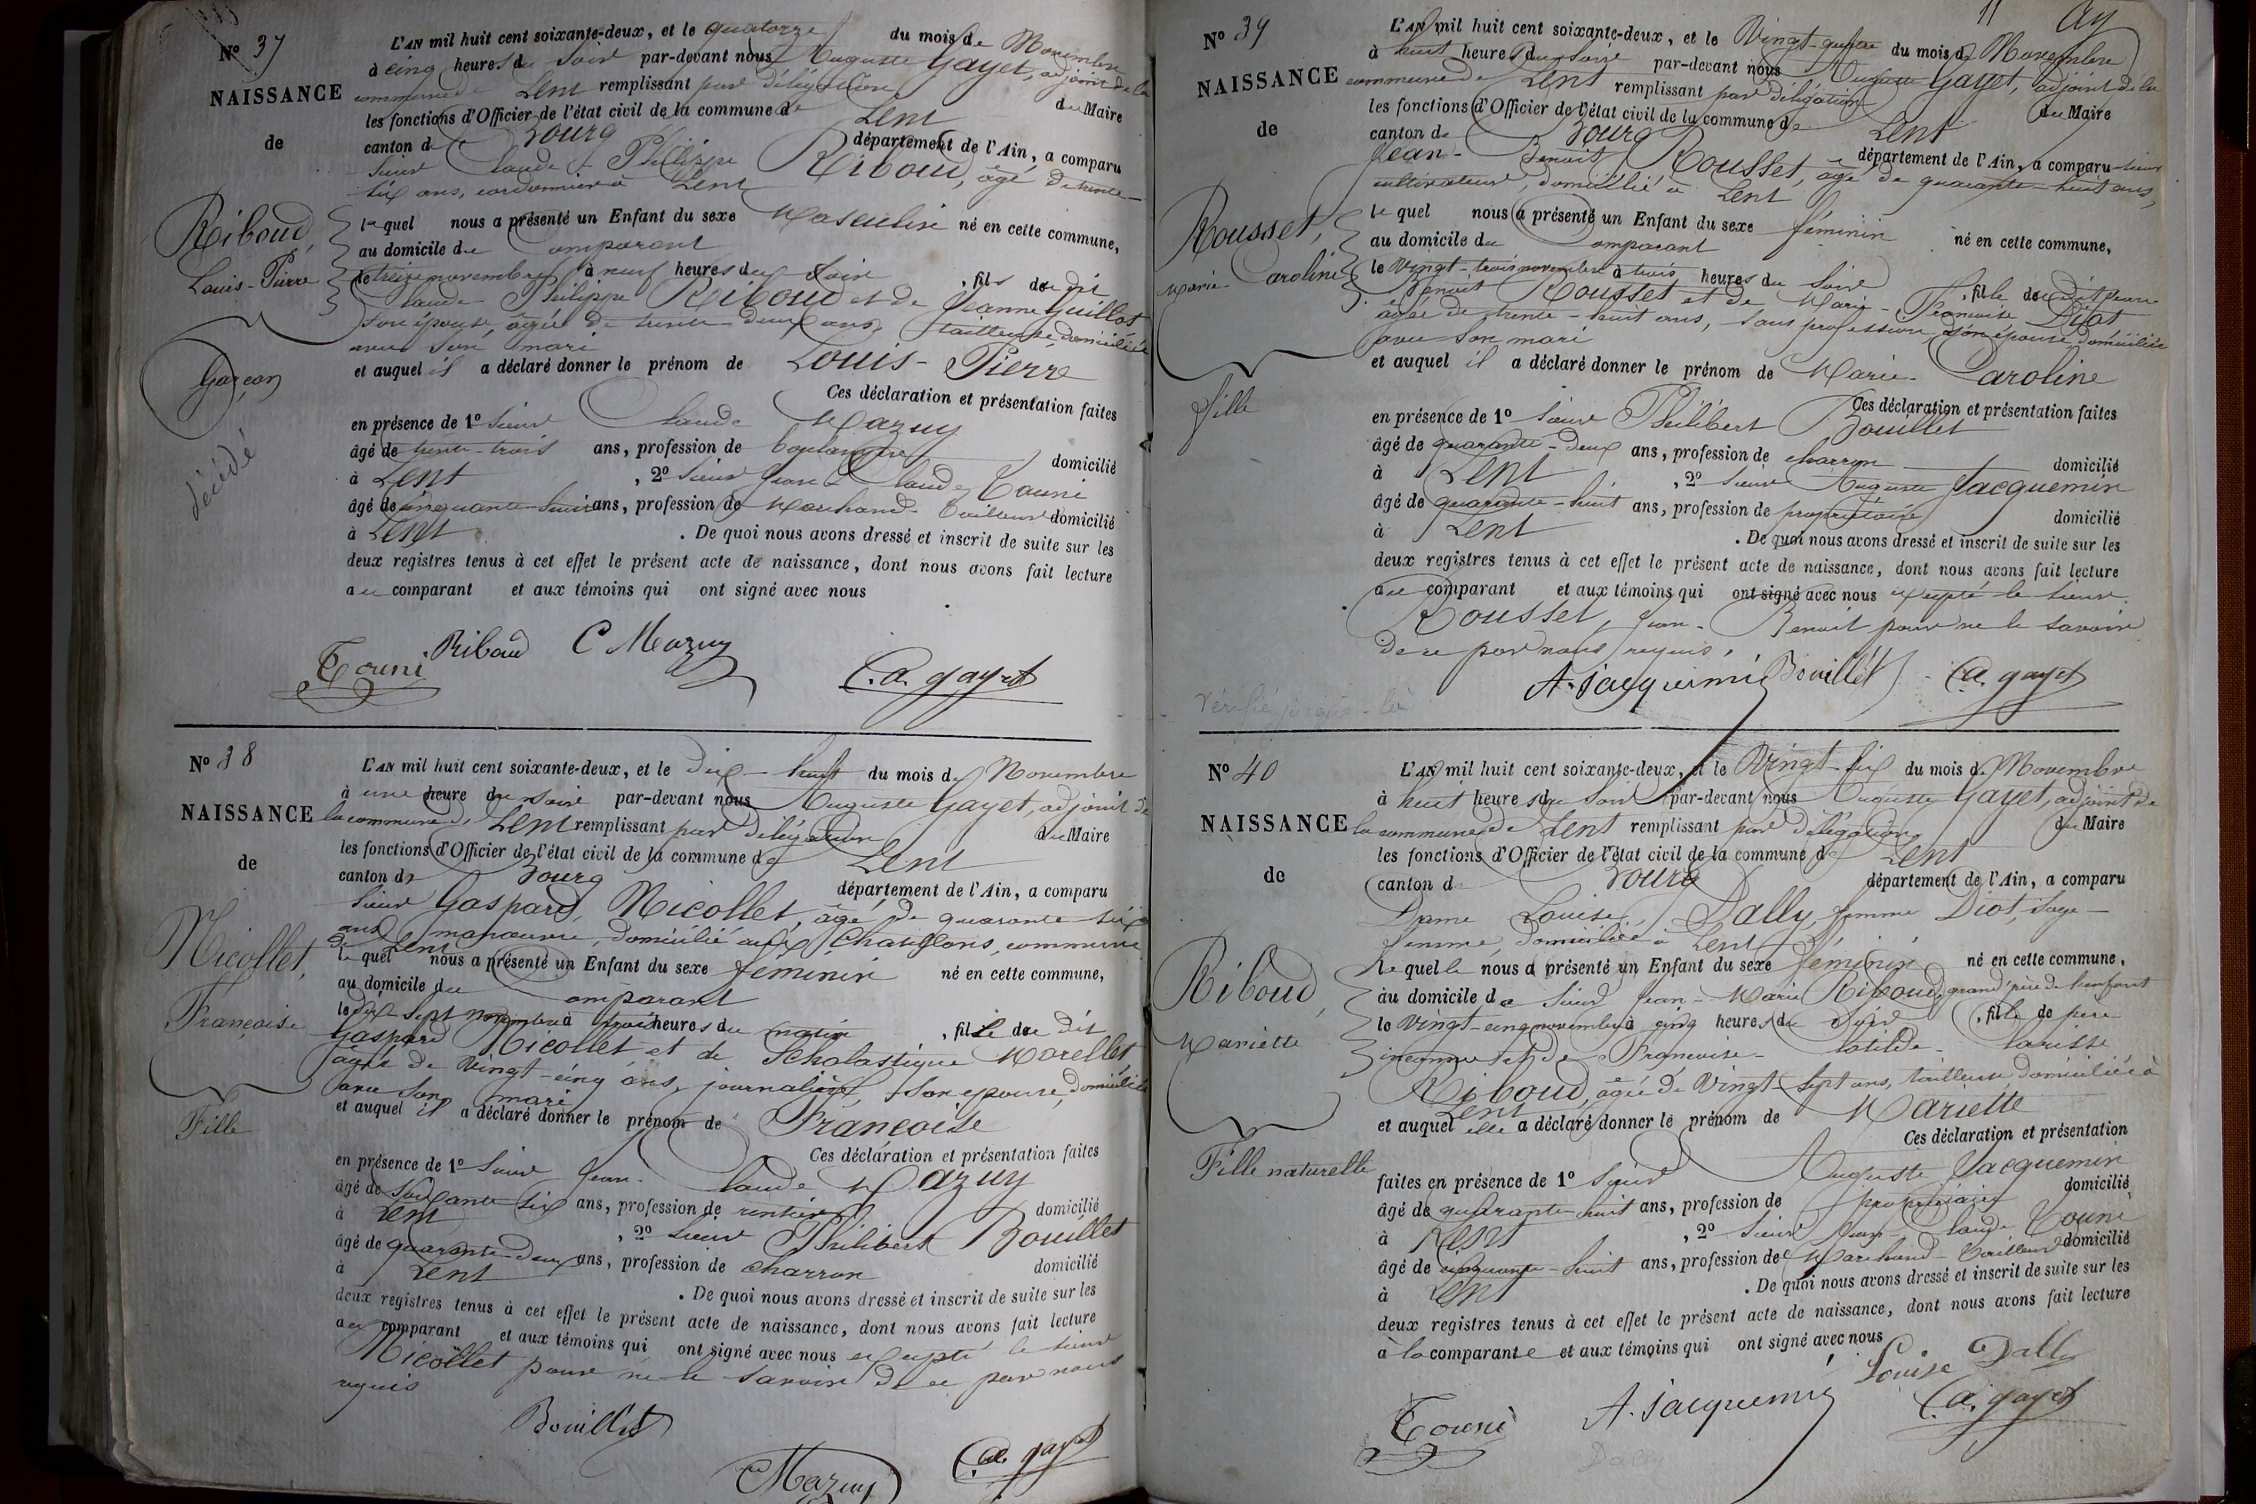 N° 37
NAISSANCE
de
Riboud,
Louis-Pierre
Garçon
décédé
L'AN mil huit cent soixante-deux, et le quatorze du mois de Novembre
à cinq heures du soir par-devant nous Auguste Gayet, adjoint de la
commune de Lent remplissant par délégation du Maire
les fonctions d'Officier de l'état civil de la commune de Lent
canton de Bourg département de l'Ain, a comparu
sieur Claude-Philippe Riboud, âgé de trente-
six ans, cordonnier à Lent
lequel nous a présenté un Enfant du sexe Masculin né en cette commune,
au domicile du Comparant
le treize novembre à neuf heures du soir, fils du dit
Claude-Philippe Riboud et de Jeanne Guillot
son épouse, âgée de trente-deux ans, tailleuse domiciliée
avec son mari
et auquel il a déclaré donner le prénom de Louis-Pierre
Ces déclaration et présentation faites
en présence de 1° sieur Claude Mazuy
âgé de trente-trois ans, profession de boulanger domicilié
à Lent, 2° sieur Jean-Claude Touni
âgé de cinquante-huit ans, profession de Marchand-Tailleur domicilié
à Lent. De quoi nous avons dressé et inscrit de suite sur les
deux registres tenus à cet effet le présent acte de naissance, dont nous avons fait lecture
au comparant et aux témoins qui ont signé avec nous
Touni Riboud C Mazuy C. a. gayet
N° 38
NAISSANCE
de
Nicollet,
Françoise
Fille
L'AN mil huit cent soixante-deux, et le dix-huit du mois de Novembre
à une heure du soir par-devant nous Auguste Gayet, adjoint de
la commune de Lent remplissant par délégation du Maire
les fonctions d'Officier de l'état civil de la commune de Lent
canton de Bourg département de l'Ain, a comparu
sieur Gaspard Nicollet, âgé de quarante-six
ans, manoeuvre, domicilié aux Chatillons, commune
de Lent
lequel nous a présenté un Enfant du sexe féminin né en cette commune,
au domicile du Comparant
le dix-sept novembre à trois heures du matin, fille du dit
Gaspard Nicollet et de Scholastique Morellet
âgée de vingt-cinq ans, journalière, son épouse, domiciliée
avec son mari
et auquel il a déclaré donner le prénom de Françoise
Ces déclaration et présentation faites
en présence de 1° sieur Jean-Claude Mazuy
âgé de soixante-six ans, profession de rentier domicilié
à Lent, 2° sieur Philibert Bouillet
âgé de quarante-deux ans, profession de charron domicilié
à Lent. De quoi nous avons dressé et inscrit de suite sur les
deux registres tenus à cet effet le présent acte de naissance, dont nous avons fait lecture
au comparant et aux témoins qui ont signé avec nous excepté le sieur
Nicollet pour ne le savoir de ce par nous
requis
Bouillet
Mazuy C. a. gayet
11
N° 39
NAISSANCE
de
Rousset,
Marie-Caroline
fille
L'AN mil huit cent soixante-deux, et le Vingt-quatre du mois de Novembre
à huit heures du soir par-devant nous Auguste Gayet, adjoint de la
commune de Lent remplissant par délégation du Maire
les fonctions d'Officier de l'état civil de la commune de Lent
canton de Bourg département de l'Ain, a comparu sieur
Jean-Benoit Rousset, âgé de quarante-huit ans,
cultivateur, domicilié à Lent
lequel nous a présenté un Enfant du sexe féminin né en cette commune,
au domicile du Comparant
le Vingt-trois novembre à trois heures du soir, fille du dit Jean-
Benoit Rousset et de Marie-Françoise Diot
âgée de trente-huit ans, sans profession, son épouse, domiciliée
avec son mari
et auquel il a déclaré donner le prénom de Marie-Caroline
Ces déclaration et présentation faites
en présence de 1° sieur Philibert Bouillet
âgé de quarante-deux ans, profession de charron domicilié
à Lent, 2° sieur Auguste Jacquemin
âgé de quarante-huit ans, profession de propriétaire domicilié
à Lent. De quoi nous avons dressé et inscrit de suite sur les
deux registres tenus à cet effet le présent acte de naissance, dont nous avons fait lecture
au comparant et aux témoins qui ont signé avec nous excepté le sieur
Rousset, Jean-Benoit pour ne le savoir
de ce par nous requis.
A. Jacquemin Bouillet C. a. gayet
Vérifié jusque-là
N° 40
NAISSANCE
de
Riboud
Mariette
Fille naturelle
L'AN mil huit cent soixante-deux, et le Vingt-six du mois de Novembre
à huit heures du soir par-devant nous Auguste Gayet, adjoint de
la commune de Lent remplissant par délégation du Maire
les fonctions d'Officier de l'état civil de la commune de Lent
canton de Bourg département de l'Ain, a comparu
Dame Louise Dally, femme Diot, sage-
femme, domiciliée à Lent
Laquelle nous a présenté un Enfant du sexe féminin né en cette commune,
au domicile de sieur Jean-Marie Riboud, grand père de l'enfant
le Vingt-cinq novembre à cinq heures du soir, fille de père
inconnu et de Françoise-Clotilde-Clarisse
Riboud, âgée de Vingt-sept ans, tailleuse, domiciliée à
Lent
et auquel elle a déclaré donner le prénom de Mariette
Ces déclaration et présentation
faites en présence de 1° sieur Auguste Jacquemin
âgé de quarante-huit ans, profession de propriétaire domicilié
à Lent, 2° sieur Jean-Claude Touni
âgé de cinquante-huit ans, profession de Marchand-Tailleur domicilié
à Lent. De quoi nous avons dressé et inscrit de suite sur les
deux registres tenus à cet effet le présent acte de naissance, dont nous avons fait lecture
à la comparante et aux témoins qui ont signé avec nous
Louise Dally
Touni A. Jacquemin C. a. gayet